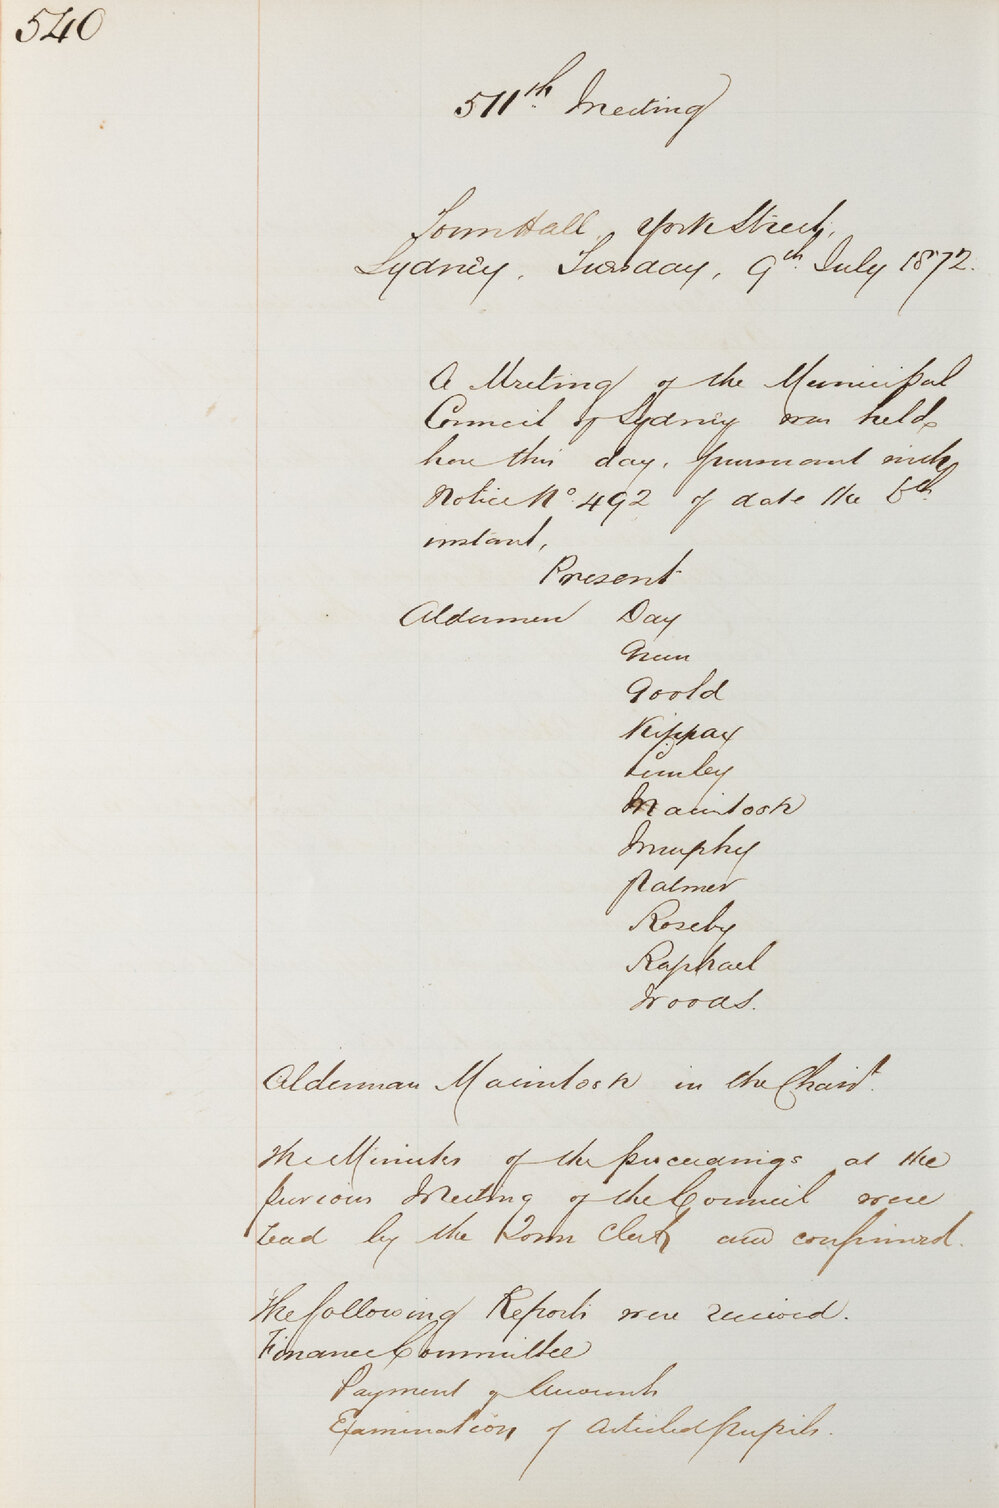 540
511th Meeting
Town Hall, York Street,
Sydney, Tuesday, 9th July 1872.
A Meeting of the Municipal
Council of Sydney was held
here this day, pursuant with
Notice No. 492 of date the 6th
instant,
Present
Aldermen Day
Green
Goold
Kippax
Lumley
Macintosh
Murphy
Palmer
Roseby
Raphael
Woods.
Alderman Macintosh in the Chair.
The Minutes of the proceedings at the
previous Meeting of the Council were
read by the Town Clerk and confirmed.
The following Reports were received.
Finance Committee
Payment of Accounts
Examination of Articled pupils.